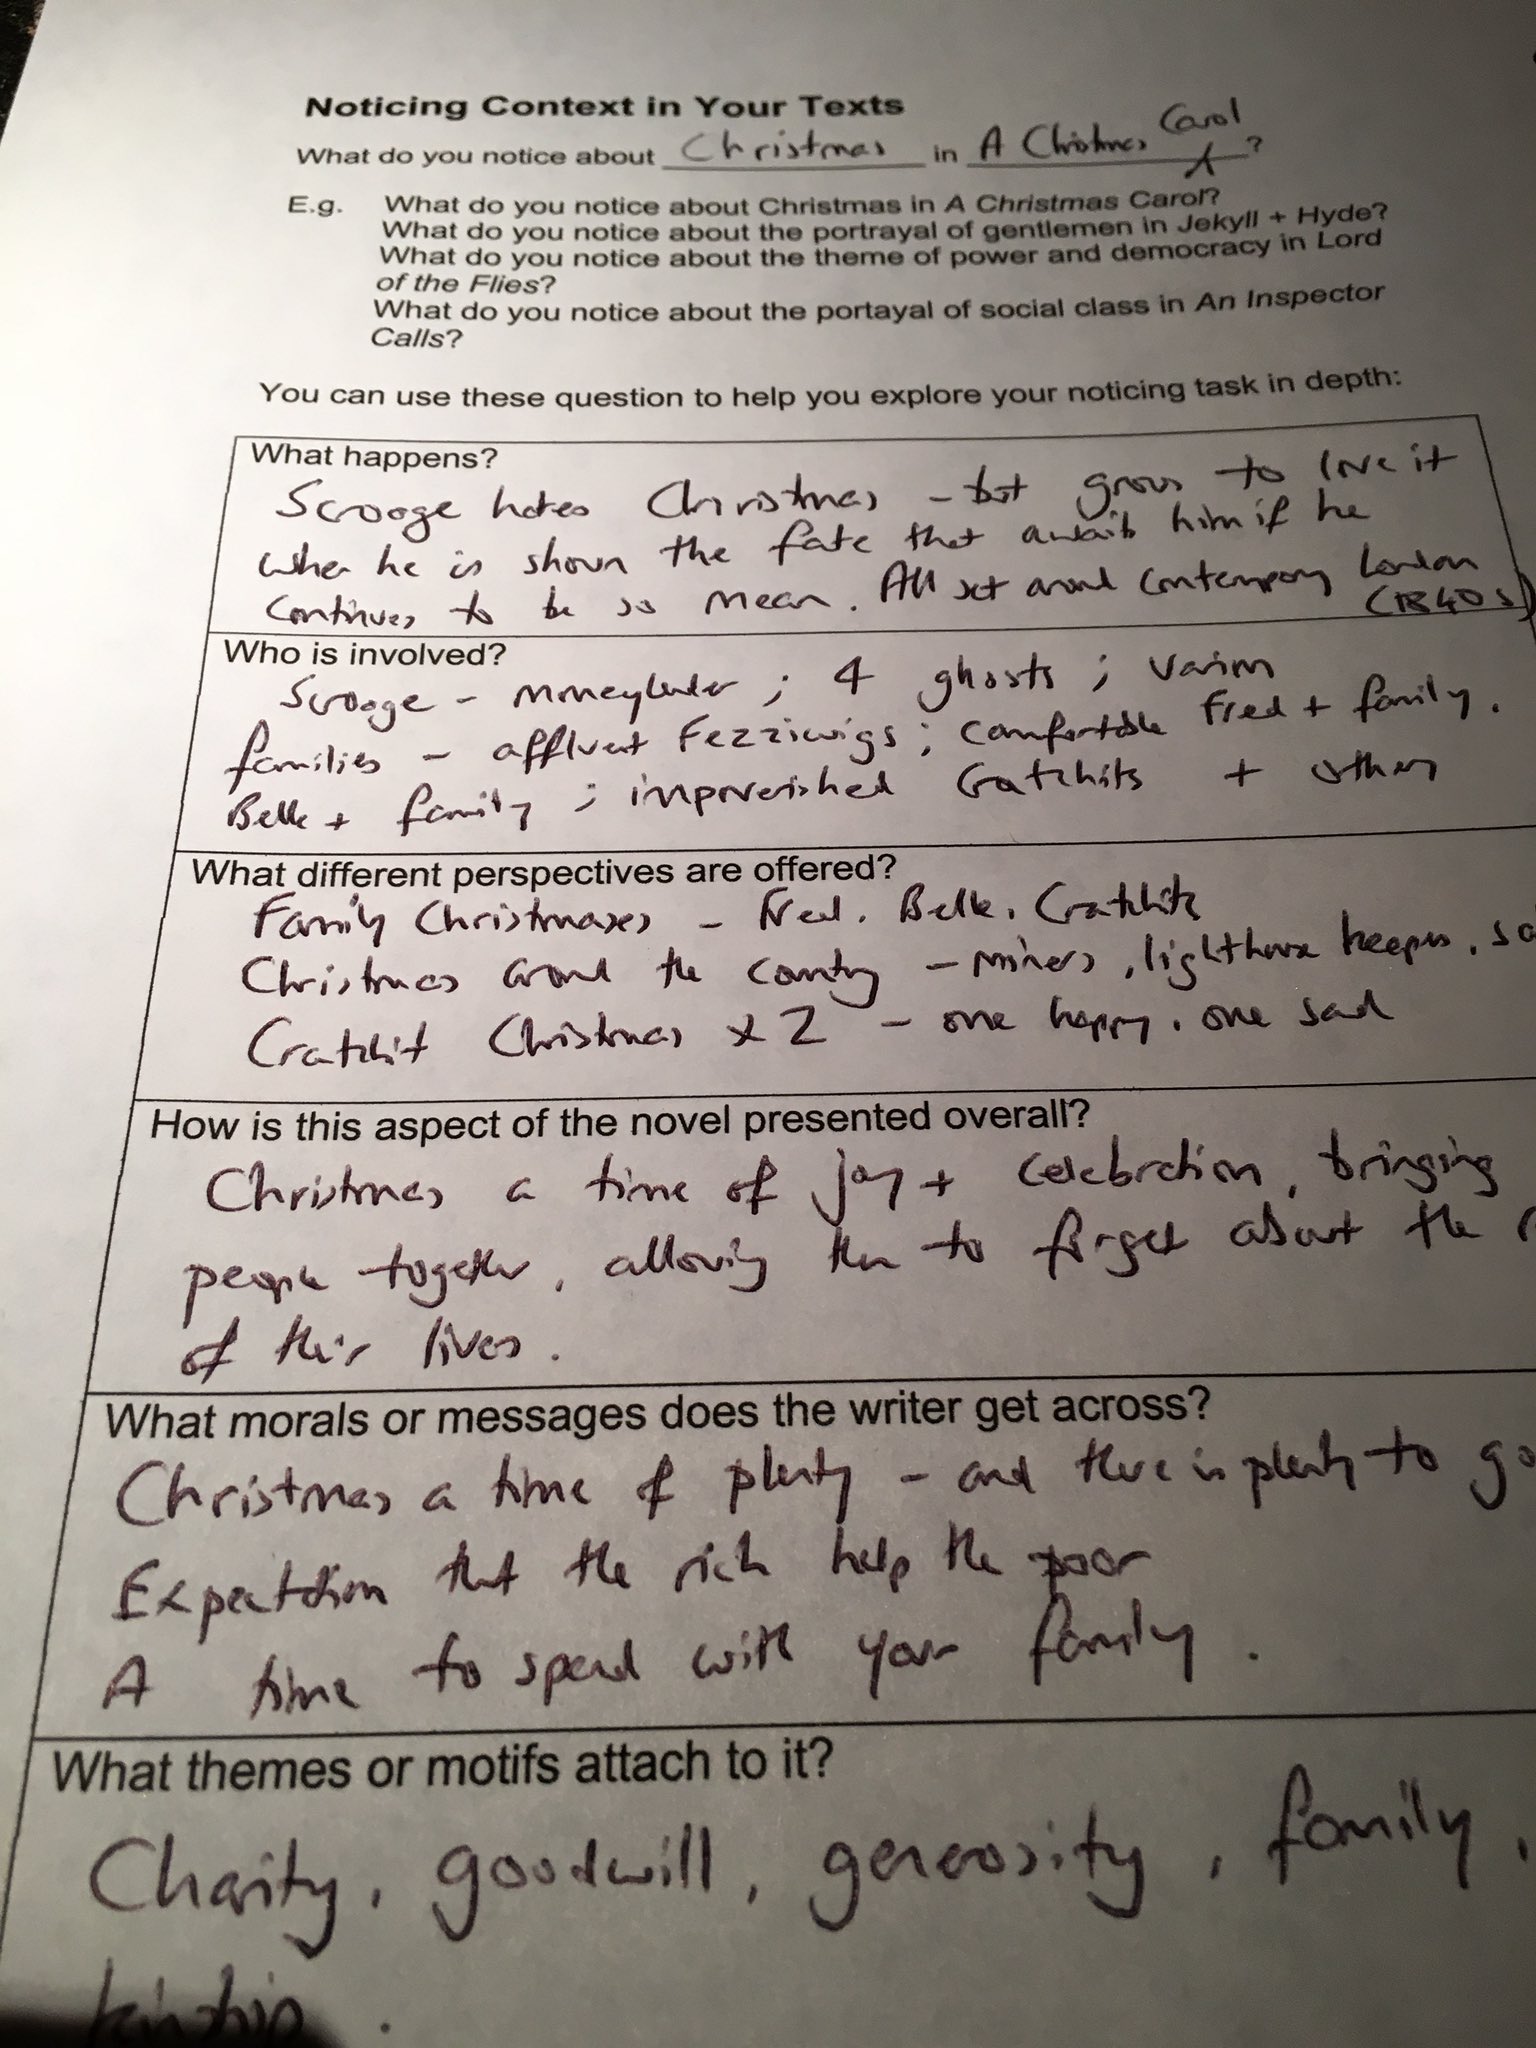 Noticing Context in Your Texts
What do you notice about Christmas in A Christmas Carol ?
E.g. What do you notice about Christmas in A Christmas Carol?
What do you notice about the portrayal of gentlemen in Jekyll + Hyde?
What do you notice about the theme of power and democracy in Lord
of the Flies?
What do you notice about the portayal of social class in An Inspector
Calls?
You can use these question to help you explore your noticing task in depth:
What happens?
Scrooge hates Christmas - but grows to love it
when he is shown the fate that awaits him if he
continues to be so mean. All set around contemporary London
(1840s)
Who is involved?
Scrooge - moneylender ; 4 ghosts ; various
families - affluent Fezziwigs ; comfortable Fred + family.
Belle + family ; impoverished Cratchits + others
What different perspectives are offered?
Family Christmases - Fred. Belle. Cratchits
Christmas around the country - miners, lighthouse keepers,
Cratchit Christmas x 2 - one happy, one sad
How is this aspect of the novel presented overall?
Christmas a time of joy + celebration, bringing
people together, allowing them to forget about the
of their lives.
What morals or messages does the writer get across?
Christmas a time of plenty - and there is plenty to go
Expectation that the rich help the poor
A time to spend with your family.
What themes or motifs attach to it?
Charity, goodwill, generosity, family,
kinship.